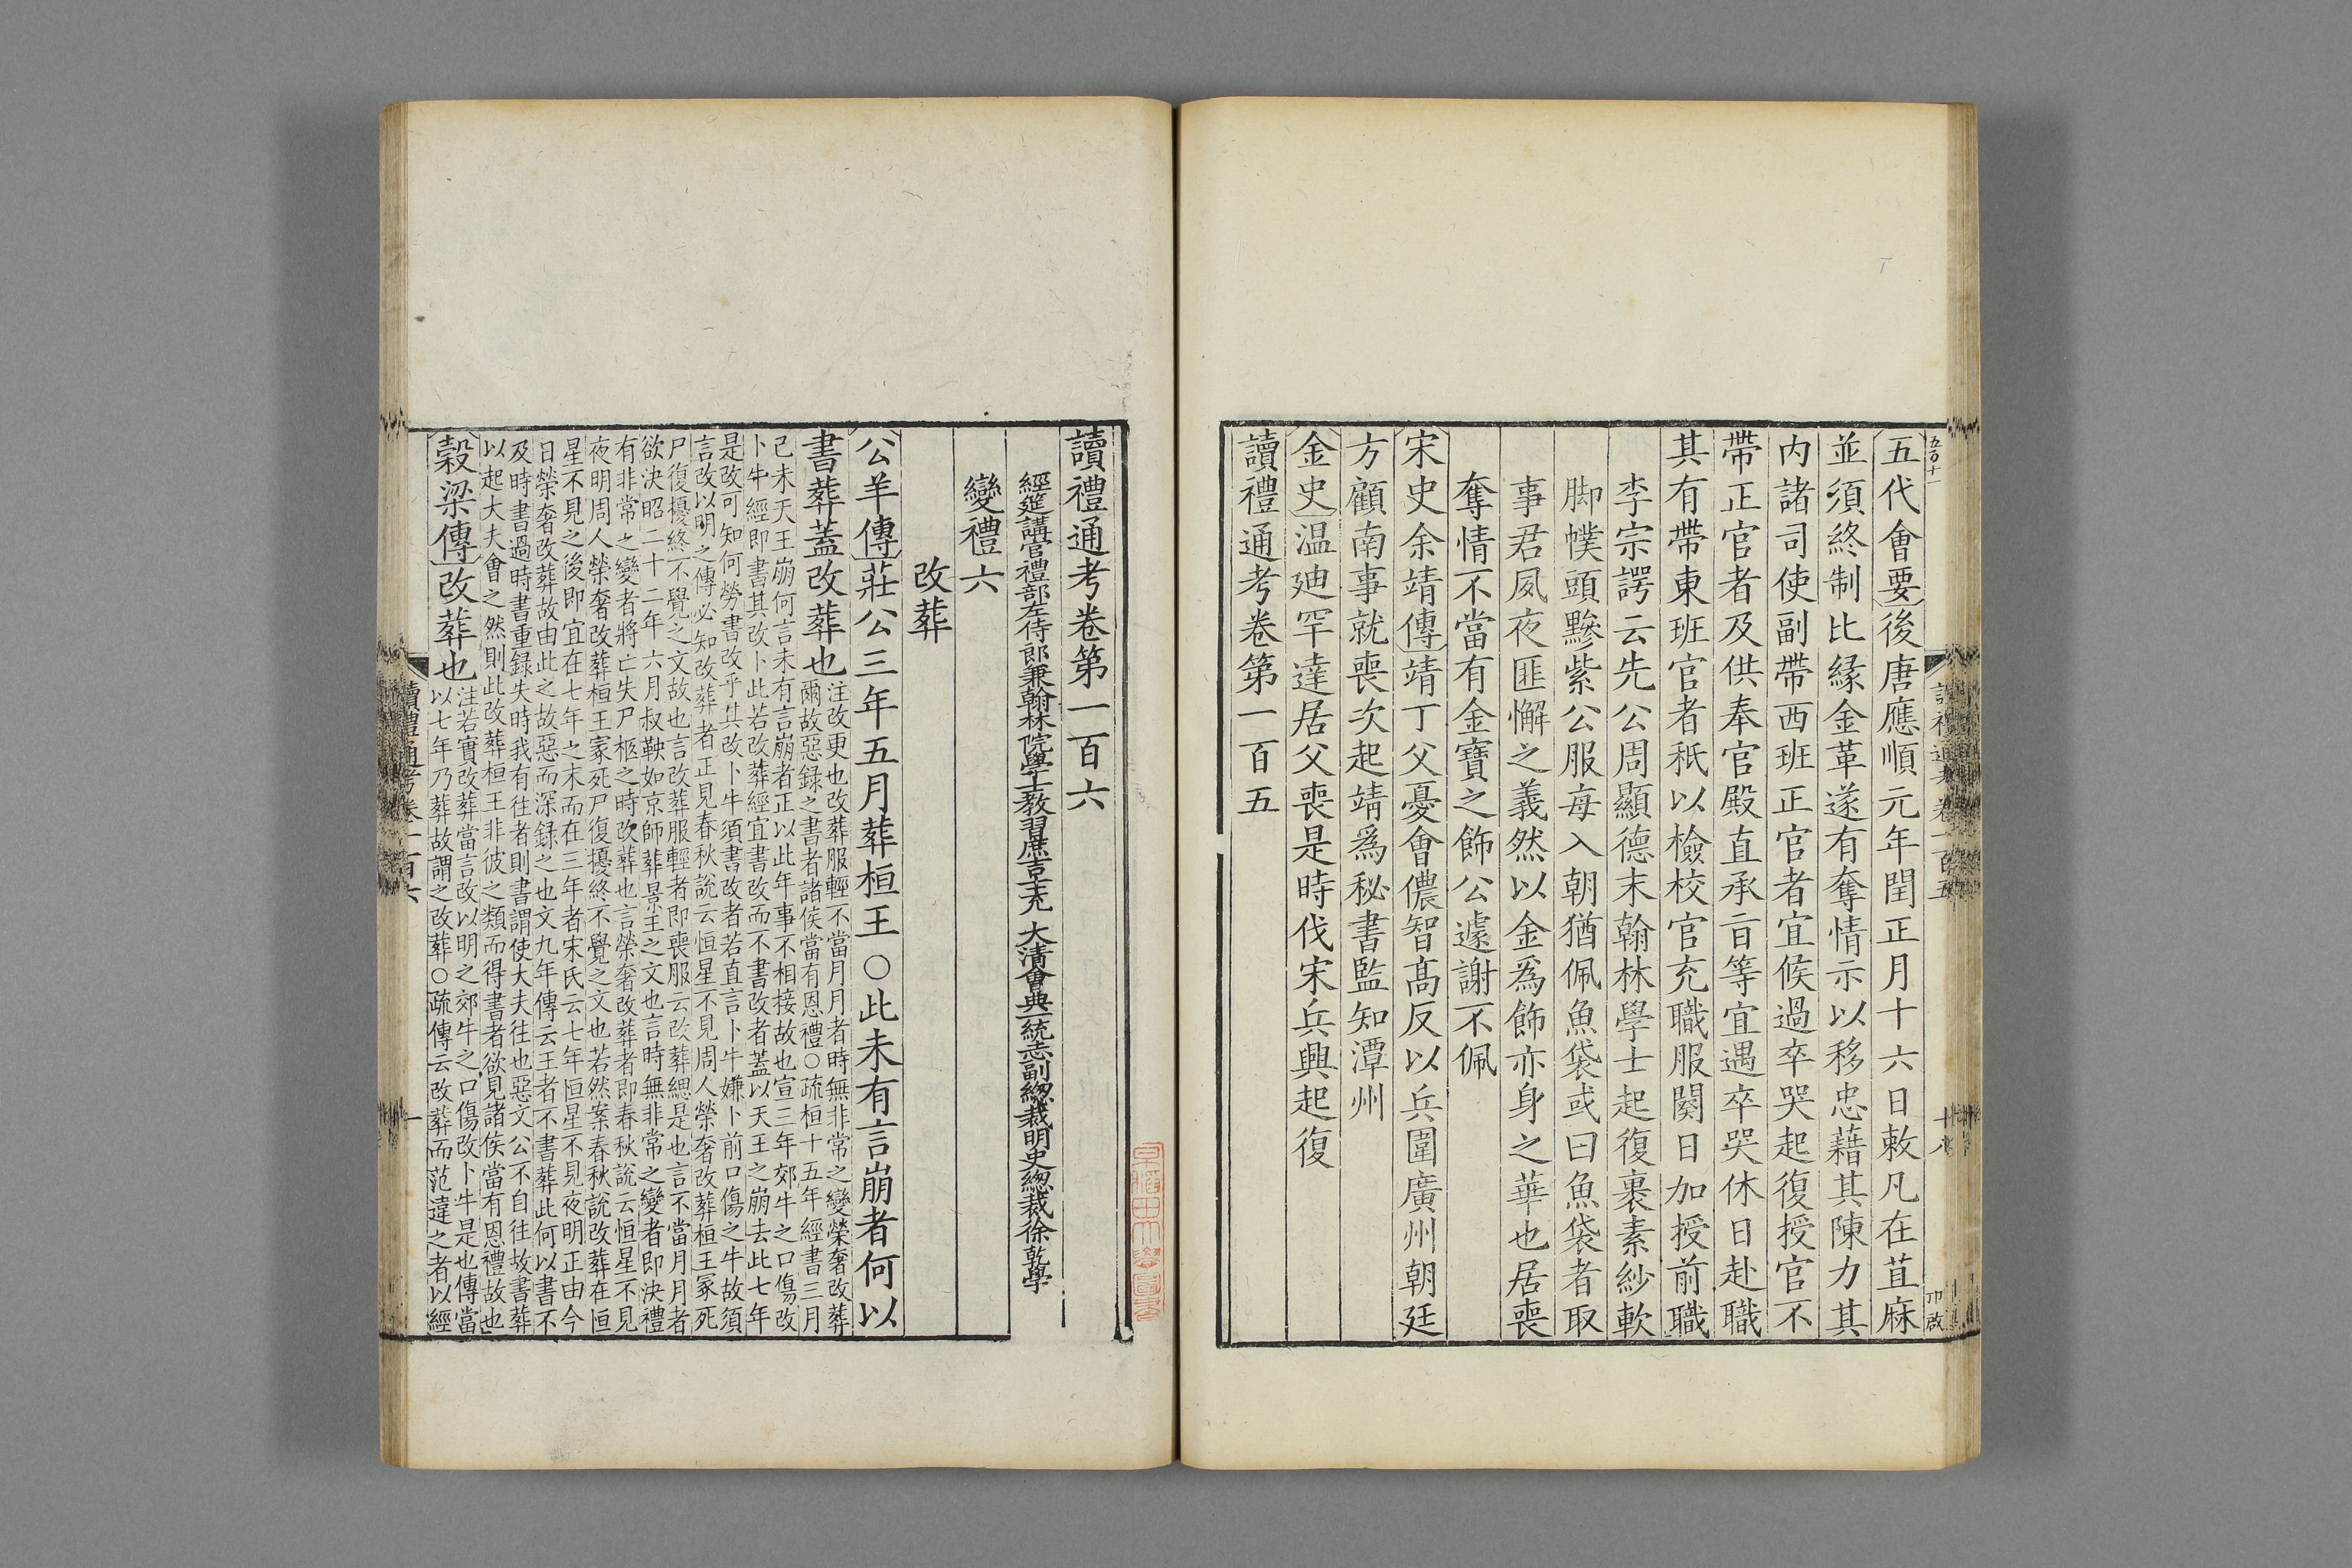 五百十一
讀禮通考卷一百五
十八
卬啟
五代會要後唐應順元年閏正月十六日敕凡在苴麻
並須終制比緣金革遂有奪情示以移忠藉其陳力其
內諸司使副帶西班正官者宜候過卒哭起復授官不
帶正官者及供奉官殿直承旨等宜遇卒哭休日赴職
其有帶東班官者秖以檢校官充職服闋日加授前職
李宗諤云先公周顯德末翰林學士起復裹素紗軟
脚幞頭黲紫公服每入朝猶佩魚袋或曰魚袋者取
事君夙夜匪懈之義然以金爲飾亦身之華也居喪
奪情不當有金寶之飾公遽謝不佩
宋史余靖傳靖丁父憂會儂智高反以兵圍廣州朝廷
方顧南事就喪次起靖爲秘書監知潭州
金史温廸罕達居父喪是時伐宋兵興起復
讀禮通考卷第一百五
讀禮通考卷第一百六
經筵講官禮部左侍郎兼翰林院學士教習庶吉士充 大清會典一統志副總裁明史總裁徐乾學
變禮六
改葬
公羊傳莊公三年五月葬桓王○此未有言崩者何以
書葬蓋改葬也
注改更也改葬服輕不當月月者時無非常之變榮奢改葬
爾故惡錄之書者諸侯當有恩禮○疏桓十五年經書三月
己未天王崩何言未有言崩者正以此年事不相接故也宣三年郊牛之口傷改
卜牛經即書其改卜此若改葬經宜書改而不書改者蓋以天王之崩去此七年
是改可知何勞書改乎其改卜牛須書改者若直言卜牛嫌卜前口傷之牛故須
言改以明之傳必知改葬者正見春秋說云恒星不見周人榮奢改葬桓王冢死
尸復擾終不覺之文故也言改葬服輕者即喪服云改葬緦是也言不當月月者
欲決昭二十二年六月叔鞅如京師葬景王之文也言時無非常之變者即決禮
有非常之變者將亡失尸柩之時改葬也言榮奢改葬者即春秋說云恒星不見
夜明周人榮奢改葬桓王冢死尸復擾終不覺之文也若然案春秋說改葬在恒
星不見之後即宜在七年之末而在三年者宋氏云七年恒星不見夜明正由今
日榮奢改葬故由此之故惡而深錄之也文九年傳云王者不書葬此何以書不
及時書過時書重錄失時我有往者則書謂使大夫往也惡文公不自往故書葬
以起大夫會之然則此改葬桓王非彼之類而得書者欲見諸侯當有恩禮故也
穀梁傳改葬也
注若實改葬當言改以明之郊牛之口傷改卜牛是也傳當
以七年乃葬故謂之改葬○疏傳云改葬而范違之者以經
讀禮通考卷一百六
一
早稻田大學圖書